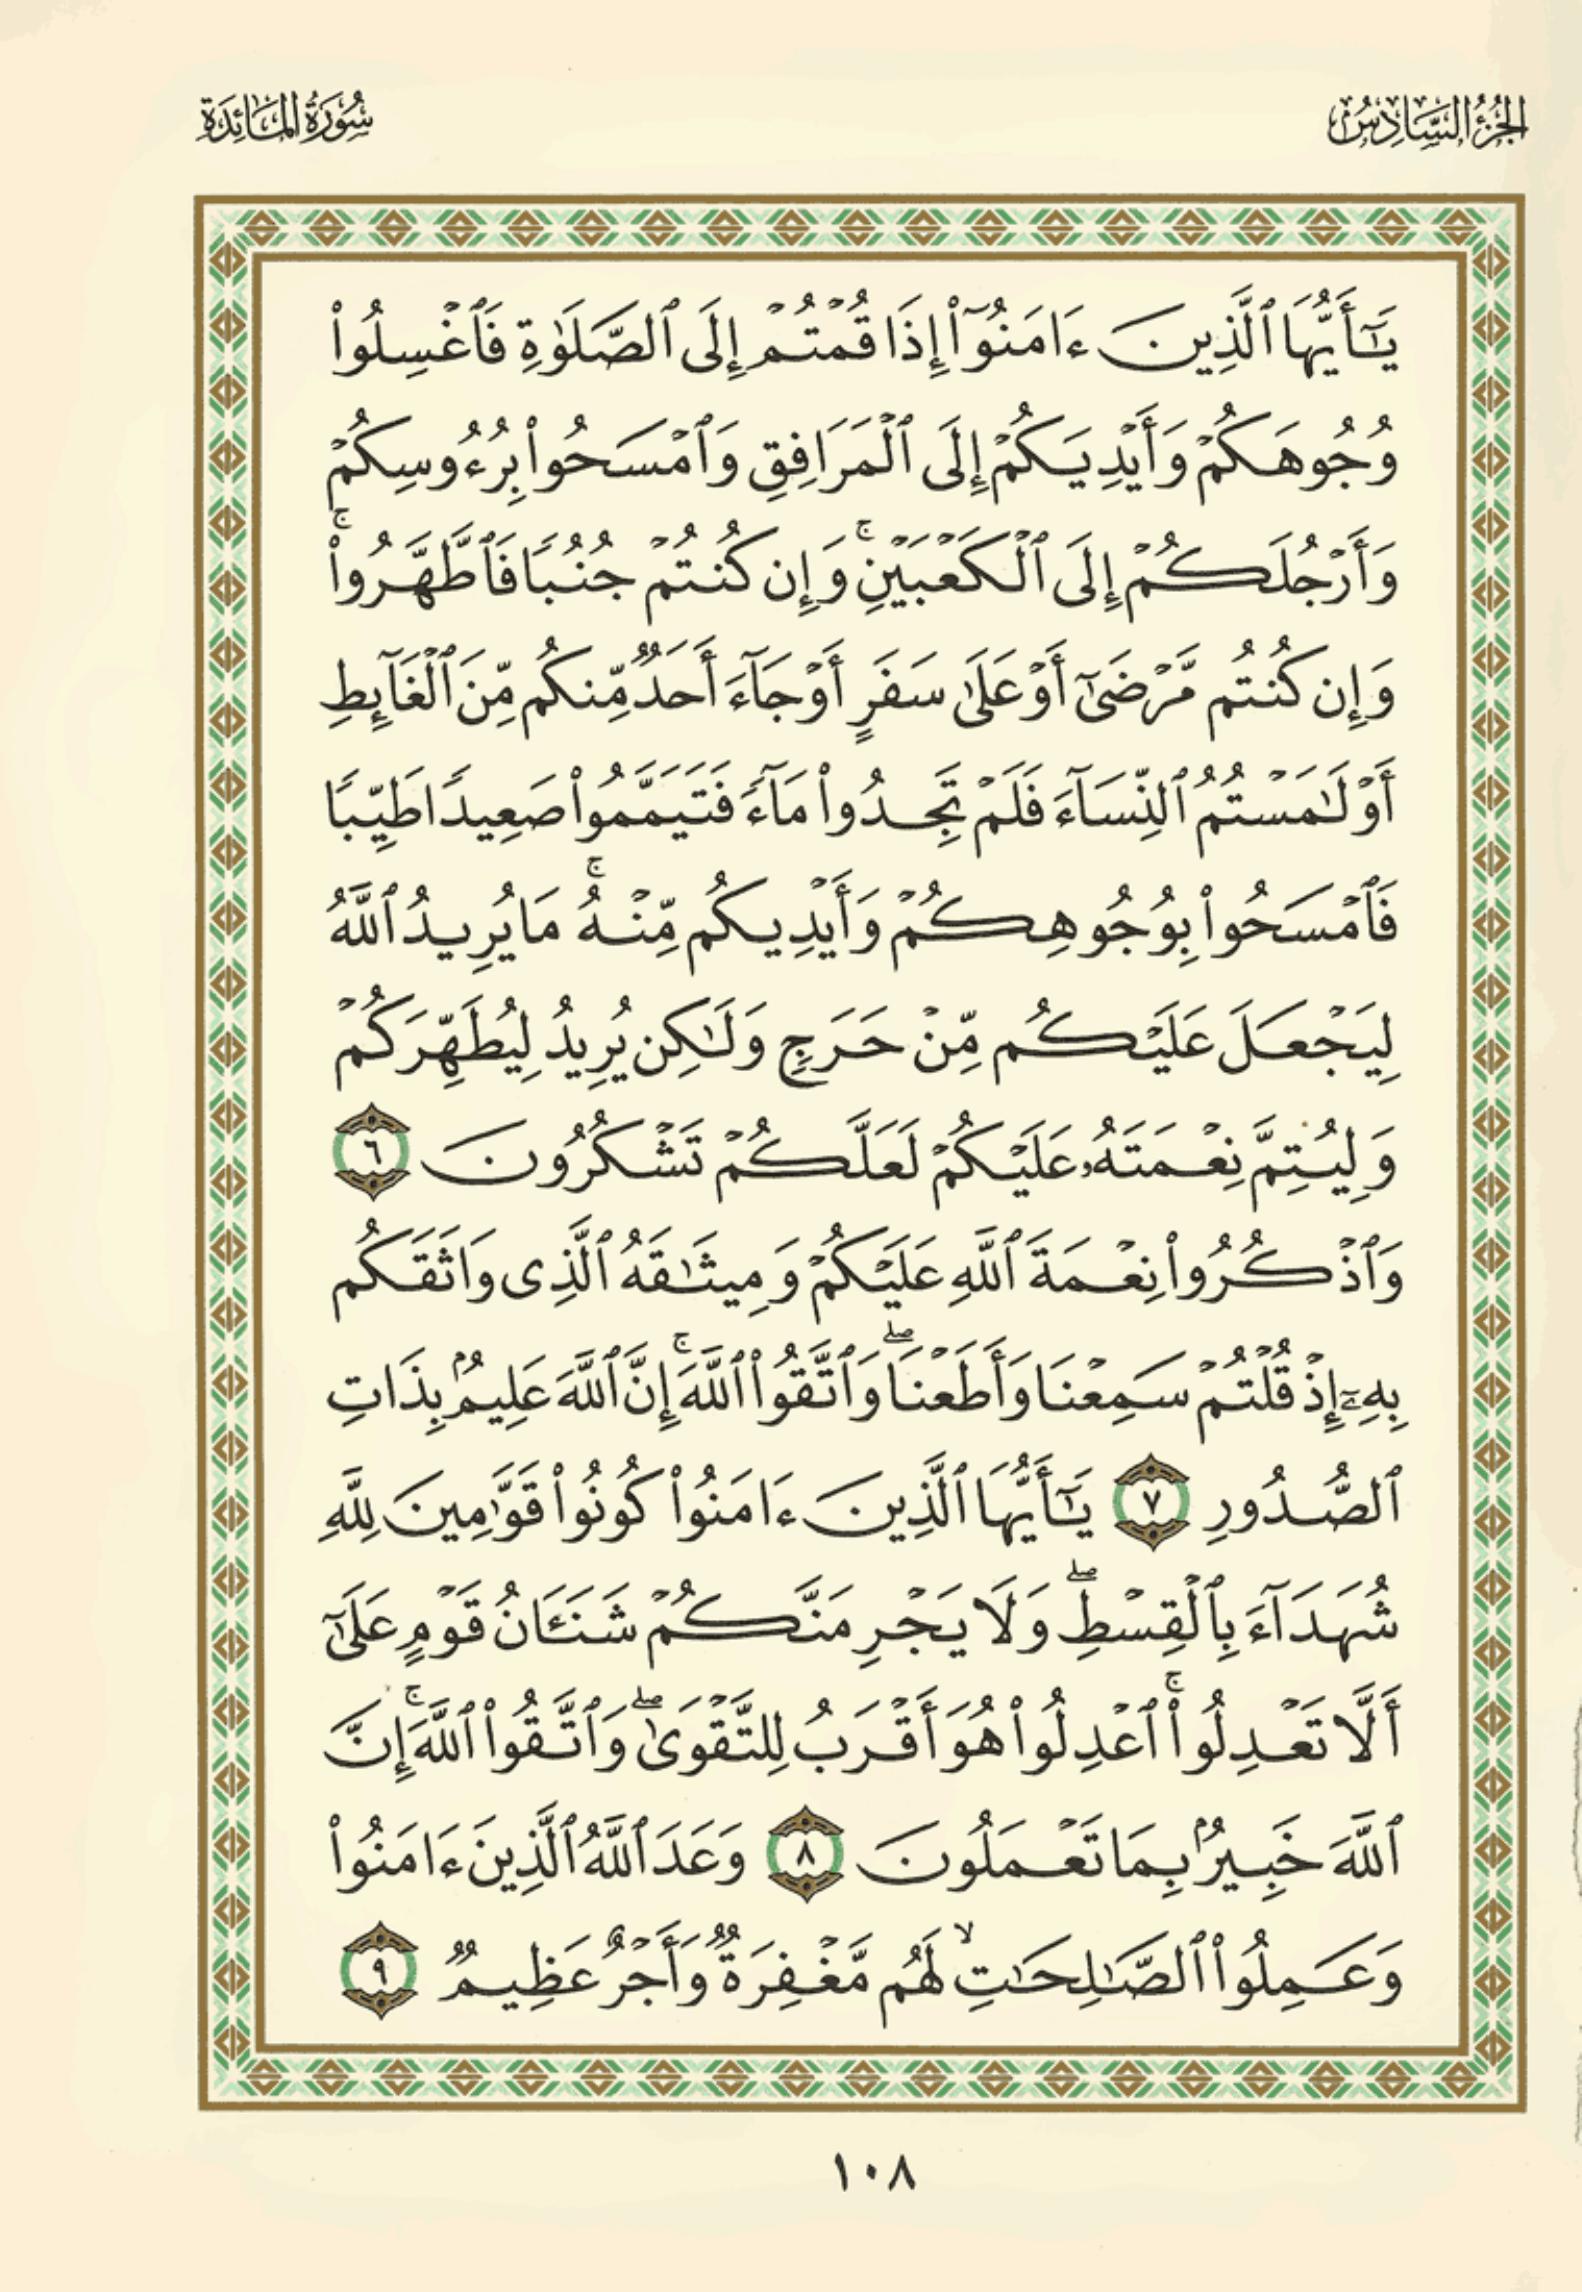 الجزء السادس
سورة المائدة
يَٰٓأَيُّهَا ٱلَّذِينَ ءَامَنُوٓاْ إِذَا قُمۡتُمۡ إِلَى ٱلصَّلَوٰةِ فَٱغۡسِلُواْ
وُجُوهَكُمۡ وَأَيۡدِيَكُمۡ إِلَى ٱلۡمَرَافِقِ وَٱمۡسَحُواْ بِرُءُوسِكُمۡ
وَأَرۡجُلَكُمۡ إِلَى ٱلۡكَعۡبَيۡنِۚ وَإِن كُنتُمۡ جُنُبٗا فَٱطَّهَّرُواْۚ
وَإِن كُنتُم مَّرۡضَىٰٓ أَوۡ عَلَىٰ سَفَرٍ أَوۡ جَآءَ أَحَدٞ مِّنكُم مِّنَ ٱلۡغَآئِطِ
أَوۡ لَٰمَسۡتُمُ ٱلنِّسَآءَ فَلَمۡ تَجِدُواْ مَآءٗ فَتَيَمَّمُواْ صَعِيدٗا طَيِّبٗا
فَٱمۡسَحُواْ بِوُجُوهِكُمۡ وَأَيۡدِيكُم مِّنۡهُۚ مَا يُرِيدُ ٱللَّهُ
لِيَجۡعَلَ عَلَيۡكُم مِّنۡ حَرَجٖ وَلَٰكِن يُرِيدُ لِيُطَهِّرَكُمۡ
وَلِيُتِمَّ نِعۡمَتَهُۥ عَلَيۡكُمۡ لَعَلَّكُمۡ تَشۡكُرُونَ ٦
وَٱذۡكُرُواْ نِعۡمَةَ ٱللَّهِ عَلَيۡكُمۡ وَمِيثَٰقَهُ ٱلَّذِي وَاثَقَكُم
بِهِۦٓ إِذۡ قُلۡتُمۡ سَمِعۡنَا وَأَطَعۡنَاۖ وَٱتَّقُواْ ٱللَّهَۚ إِنَّ ٱللَّهَ عَلِيمُۢ بِذَاتِ
ٱلصُّدُورِ ٧ يَٰٓأَيُّهَا ٱلَّذِينَ ءَامَنُواْ كُونُواْ قَوَّٰمِينَ لِلَّهِ
شُهَدَآءَ بِٱلۡقِسۡطِۖ وَلَا يَجۡرِمَنَّكُمۡ شَنَـَٔانُ قَوۡمٍ عَلَىٰٓ
أَلَّا تَعۡدِلُواْۚ ٱعۡدِلُواْ هُوَ أَقۡرَبُ لِلتَّقۡوَىٰۖ وَٱتَّقُواْ ٱللَّهَۚ إِنَّ
ٱللَّهَ خَبِيرُۢ بِمَا تَعۡمَلُونَ ٨ وَعَدَ ٱللَّهُ ٱلَّذِينَ ءَامَنُواْ
وَعَمِلُواْ ٱلصَّٰلِحَٰتِۙ لَهُم مَّغۡفِرَةٞ وَأَجۡرٌ عَظِيمٞ ٩
١٠٨